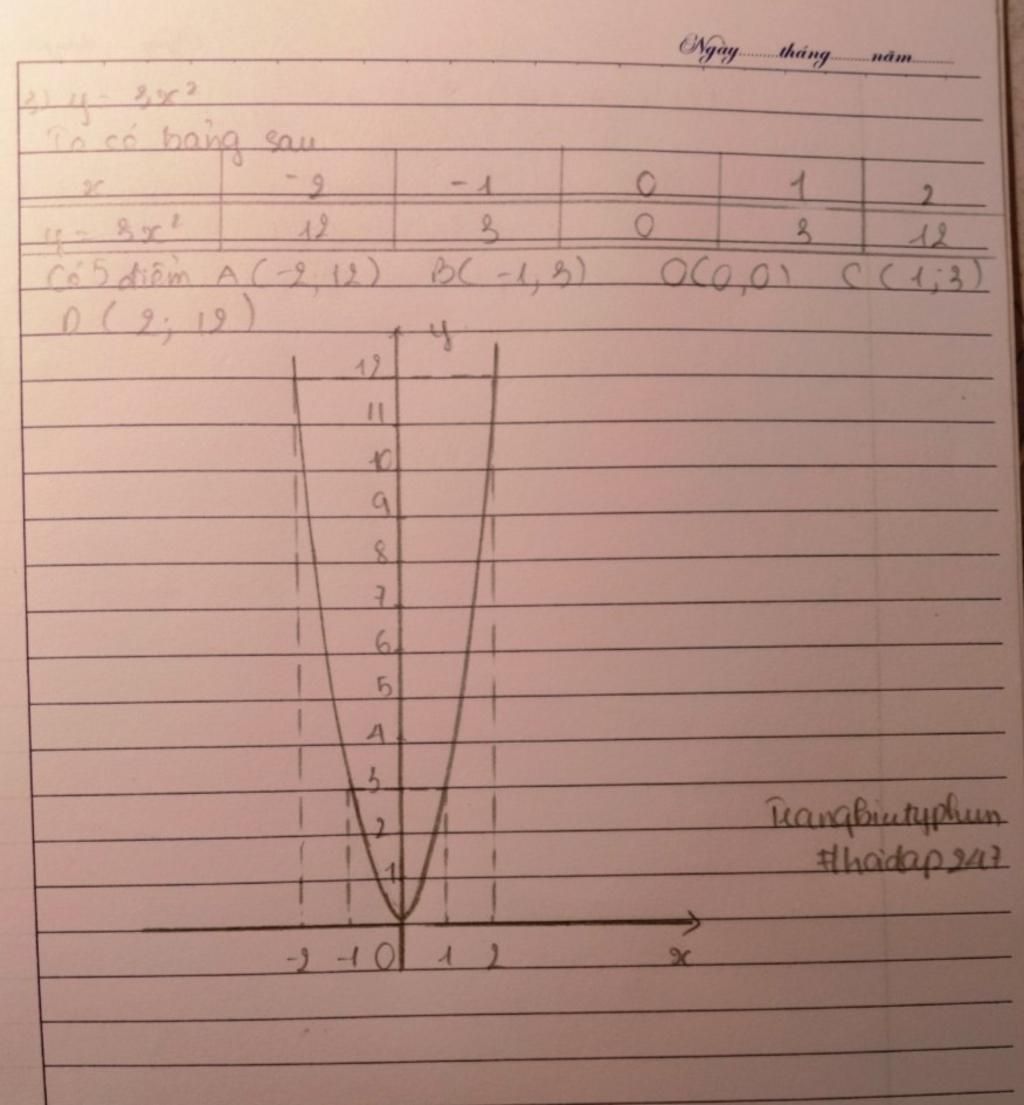 Ngày.........tháng.........năm.........
3) y = 3x²
Ta có bảng sau
x -2 -1 0 1 2
y = 3x² 12 3 0 3 12
Có 5 điểm A(-2,12) B(-1,3) O(0,0) C(1;3)
D(2; 12)
y
12
11
10
9
8
7
6
5
4
3
2
1
-2 -1 O 1 2 x
Trangbiutyphun
#hoidap247